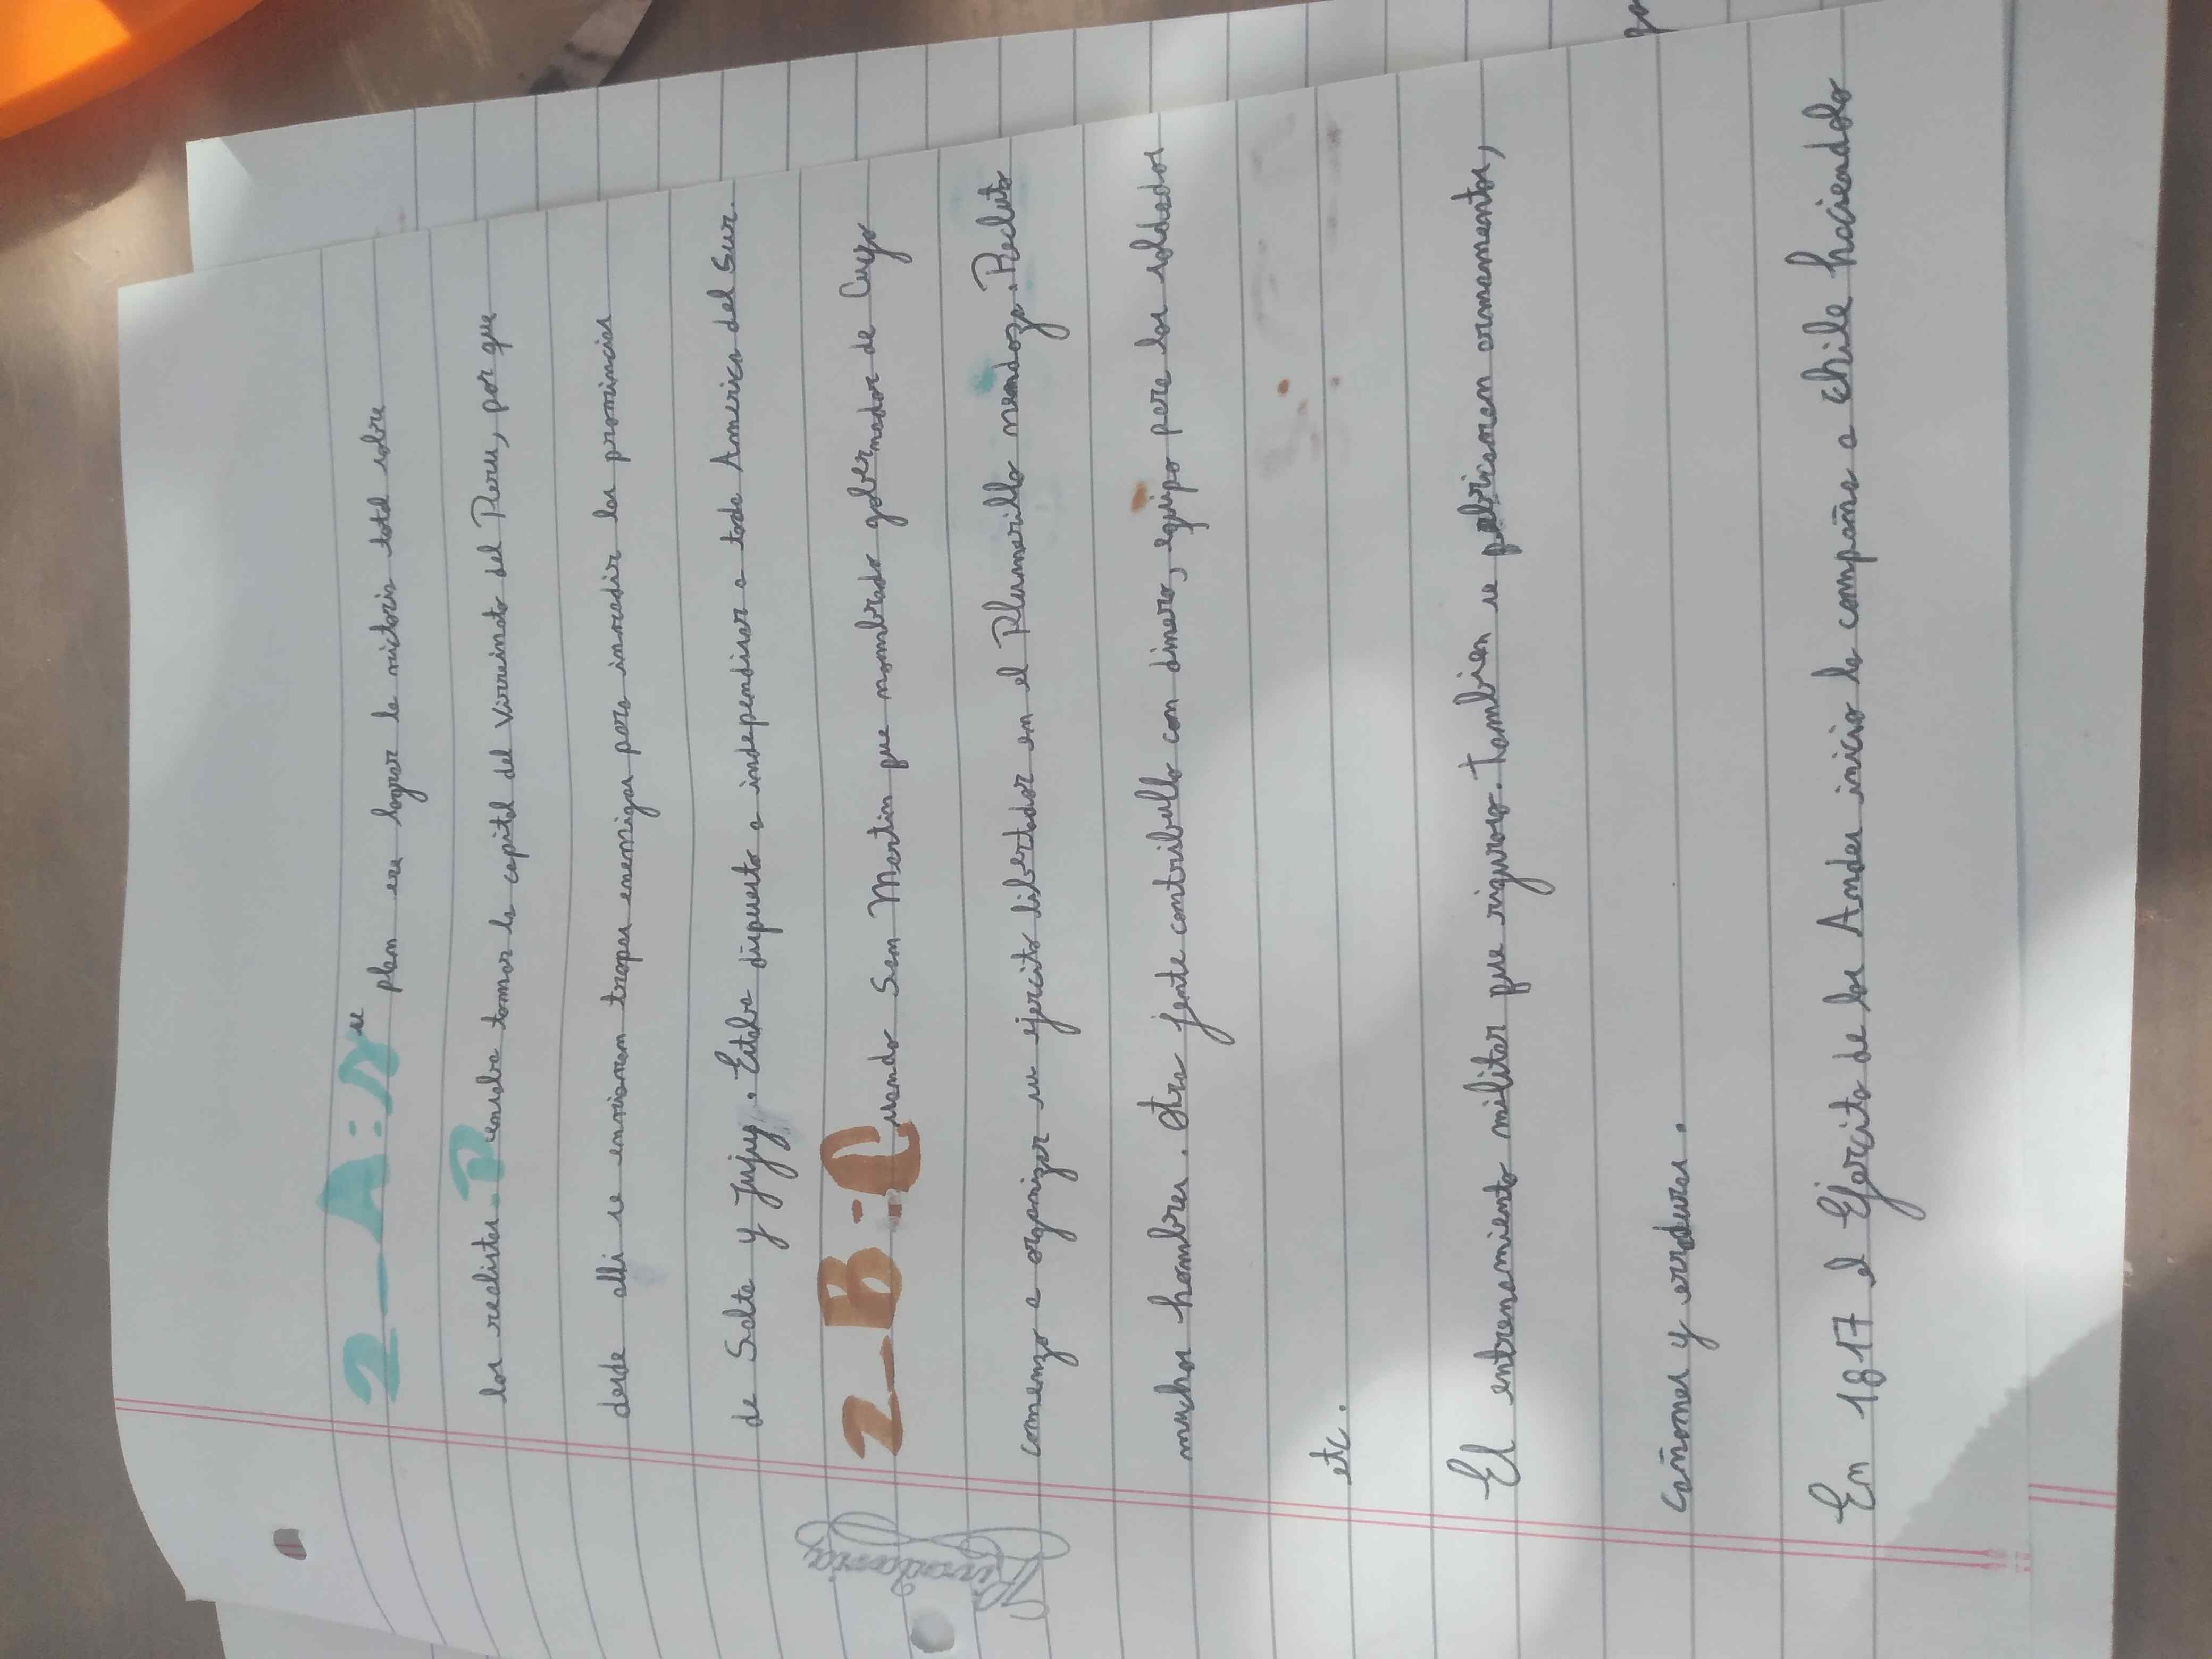 2_A: Su plan era lograr la victoria total sobre
los realistas. Pensaba tomar la capital del Virreinato del Peru, por que
desde alli se enviavan tropas enemigas para invadir las provincias
de Salta y Jujuy. Estaba dispuesto a independisar a toda America del Sur.
2_B: Cuando San Martin fue nombrado gobernador de Cuyo
comenzo a organizar su ejercito libertador en el Plumerillo mendoza. Recluto
muchos hombres. Otra jente contribullo con dinero, equipo para los soldados
etc.
El entrenamiento militar fue riguroso. Tambien se fabricaron armamentos,
cañones y erraduras.
En 1817 el Ejercito de los Andes inicio la campaña a Chile haciendolo
Rivadavia